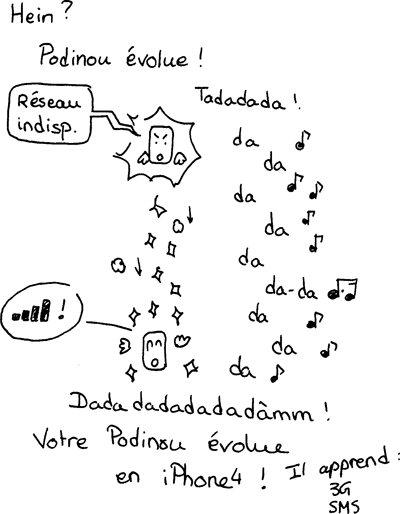 Hein ?
Podinou évolue !
Réseau
indisp.
Tadadada !
da
da
da
da
da
da
da-da
da
da
da
!
Dadadadadadadâmm !
Votre Podinou évolue
en iPhone4 ! Il apprend :
3G
SMS